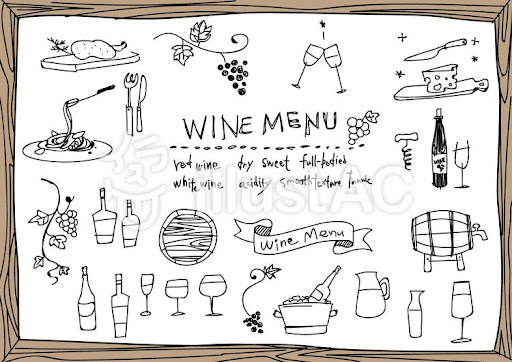 WINE MENU
red wine dry sweet full-bodied
white wine acidity smooth texture
Wine Menu
WINE
illustAC